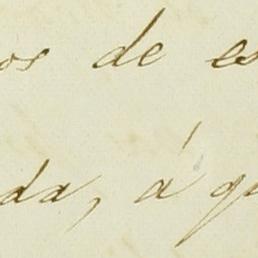 os de es
da, á qu